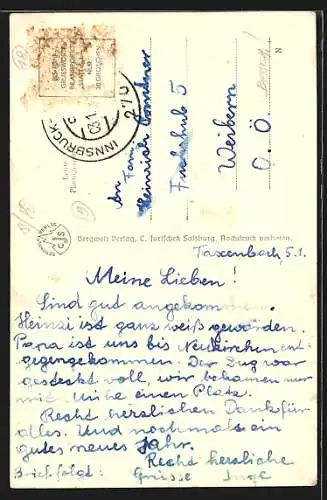 An Familie
Heinrich
5
Weibern
O. Ö.
INNSBRUCK
Bergwelt Verlag, C. Jurischek Salzburg. Nachdruck verboten.
Taxenbach, 5.1.
Meine Lieben!
Sind gut angekommen.
Heinzi ist ganz weiß geworden.
Papa ist uns bis Neukirchen ent-
gegengekommen. Der Zug war
gesteckt voll, wir bekamen nur
mit Mühe einen Platz.
Recht herzlichen Dank für
alles. Und nochmals ein
gutes neues Jahr.
Recht herzliche
Brief folgt! Grüsse Inge